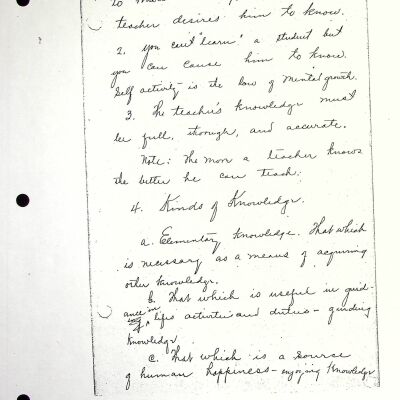 teacher desires him to know.
2. you can't "learn" a student but
you can cause him to know.
Self activity is the law of mental growth.
3. The teacher's knowledge must
be full, thorough, and accurate.
Note: The more a teacher knows
the better he can teach.
4. Kinds of Knowledge.
a. Elementary knowledge. That which
is necessary as a means of acquiring
other knowledge.
b. That which is useful in guid-
ance in
of life's activities and duties - guiding
knowledge
c. That which is a source
of human happiness - enjoying knowledge